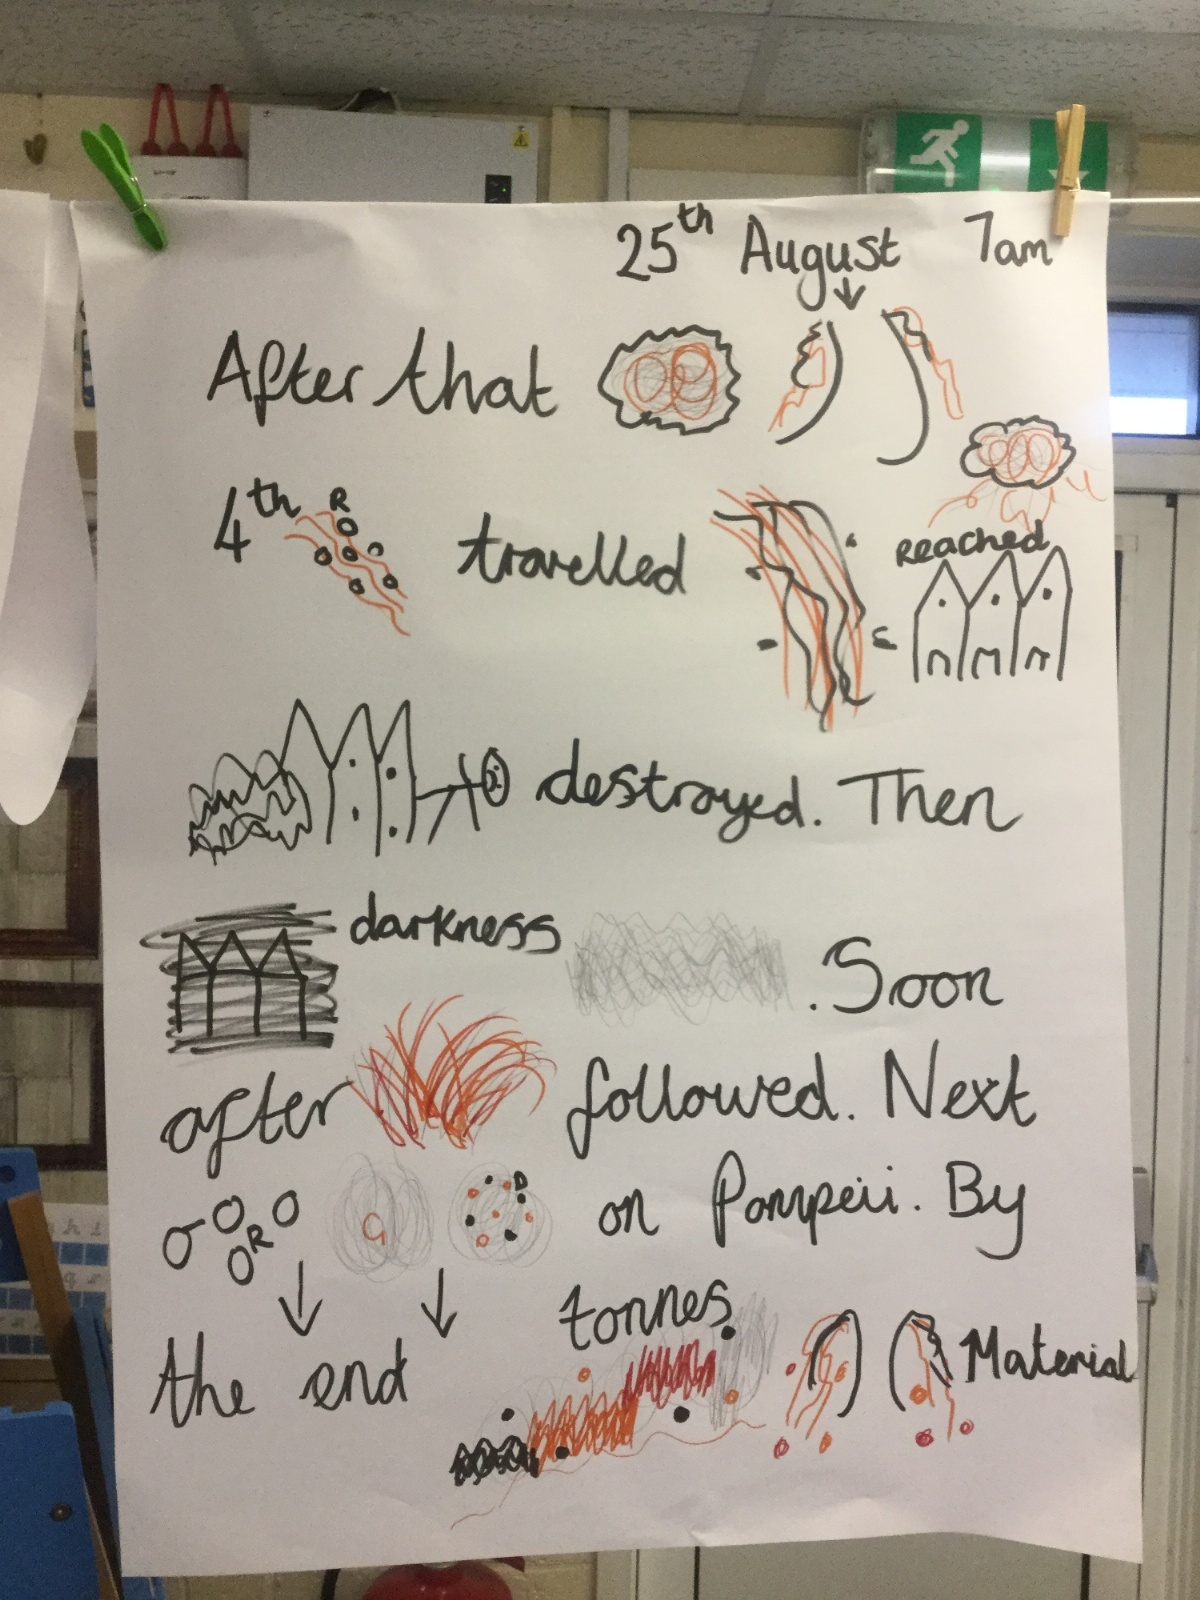 25th August 7am
After that
4th R travelled reached
destroyed. Then
darkness . Soon
after followed. Next
R on Pompeii. By
the end tonnes Material